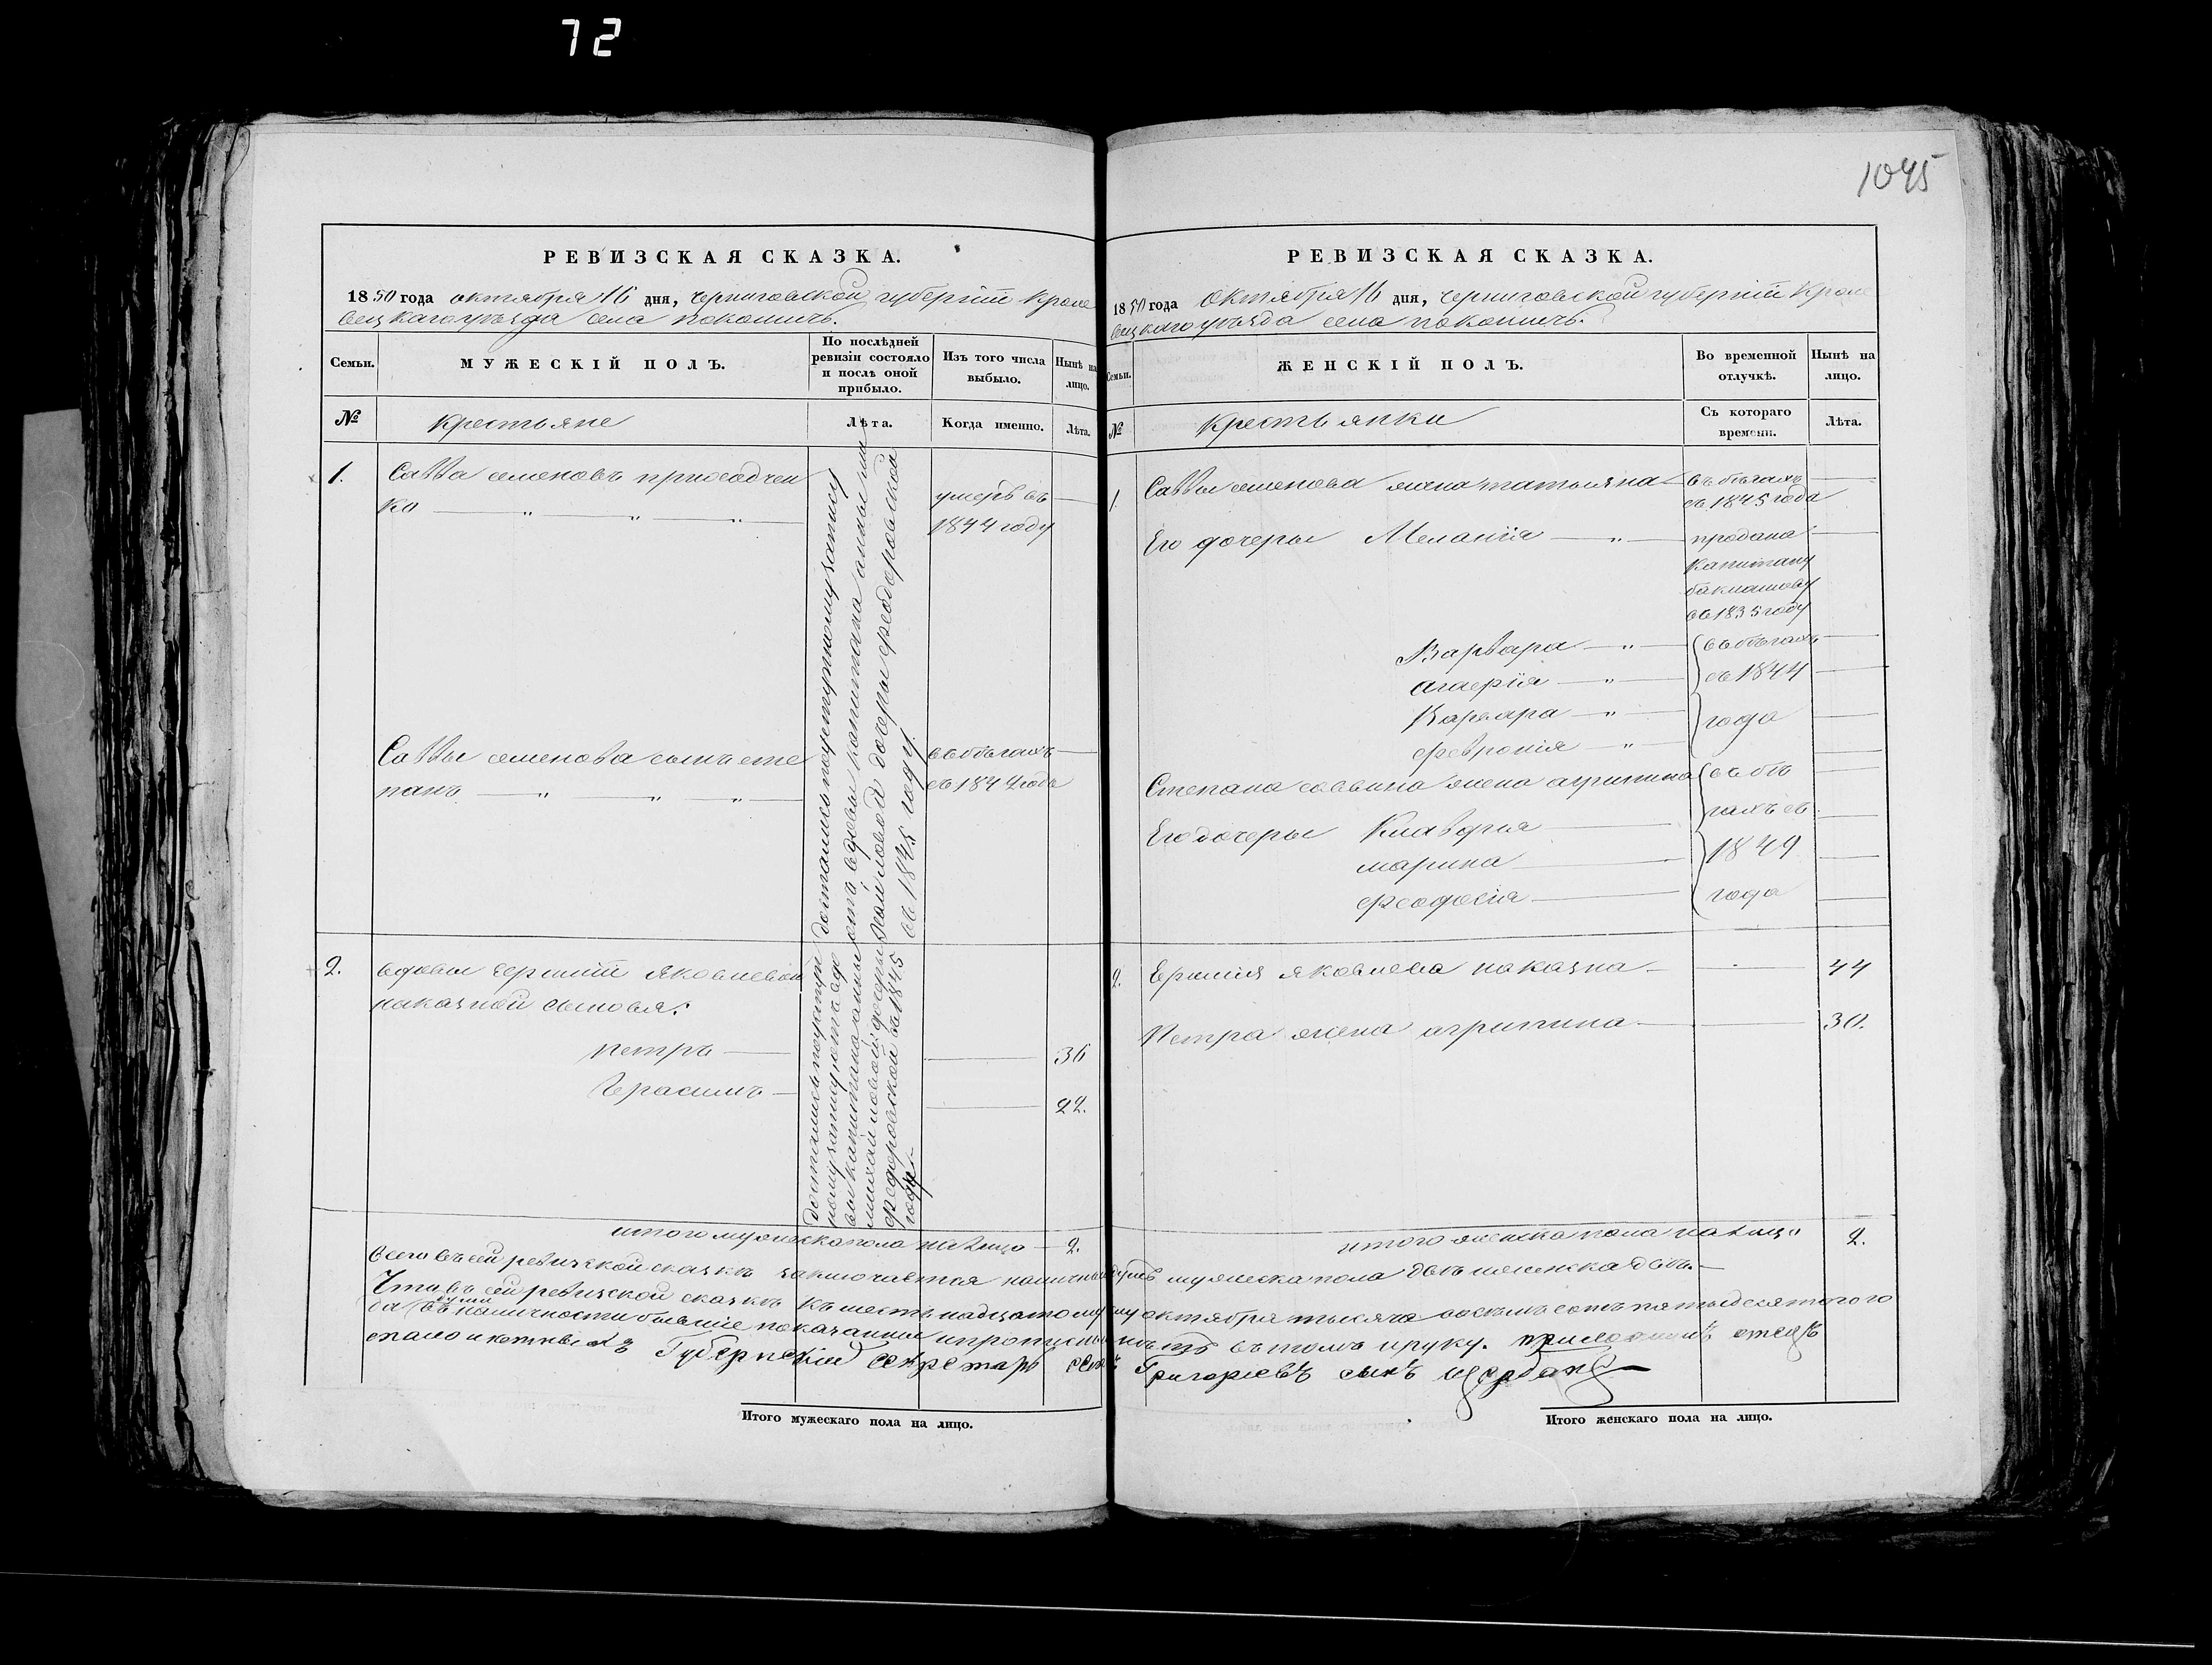 72
1045
РЕВИЗСКАЯ СКАЗКА.
1850 года октября 16 дня, черниговской губерніи Кроле
вецкаго уѣзда села покошичь.
Семьи.
МУЖЕСКІЙ ПОЛЪ.
По послѣдней ревизіи состояло и послѣ оной прибыло.
Изъ того числа выбыло.
Нынѣ на лицо.
№
крестьяне
Лѣта.
Когда именно.
Лѣта.
1.
Савва семеновъ присадчен
ко
умеръ въ
1844 году
достались по уступному запису
отъ вдовы капитана анны ми
хайловой дочеры феодоровской
въ 1845 году.
Саввы семенова сынъ сте
панъ
въ бѣгахъ
съ 1844 года
2.
вдовы ермиліи яковлевой
наказной сыновья:
петръ
36
Герасимъ
22.
феодоровской въ 1845
года
итого мужеска пола на лицо
2.
РЕВИЗСКАЯ СКАЗКА.
1850 года Октября 16 дня, черниговской губерніи Кроле
вецкаго уѣзда села покошичь.
Семьи.
ЖЕНСКІЙ ПОЛЪ.
Во временной отлучкѣ.
Нынѣ на лицо.
№
крестьянки
Съ котораго времени.
Лѣта.
1.
Саввы семенова жена татьяна
въ бѣгахъ
съ 1845 года
Его дочеры Меланія
продана
капитану
въ 1835 году
Варвара
въ бѣгахъ
агафія
съ 1844
Варвара
года
феvронія
Степана саввина жена агрипина
въ бѣ
гахъ съ
Его дочеры Клавдія
1849
марина
феодосія
года
2.
яковлева наказна
44
Петра жена агрипина
30.
итого женска пола на лицо
2.
всего въ сей ревизской сказкѣ заключается наличныхъ душъ мужеска пола двѣ женска двѣ.
Что въ сей ревизской сказкѣ къ шестьнадцатому октября тысяча восемъ сотъ пятьдесятого го
да всѣ души въ наличности бывшіе показанны и пропущенныхъ нѣтъ въ томъ и руку.
Губернскій секретарь Григоріевъ сынъ
Итого мужескаго пола на лицо.
Итого женскаго пола на лицо.